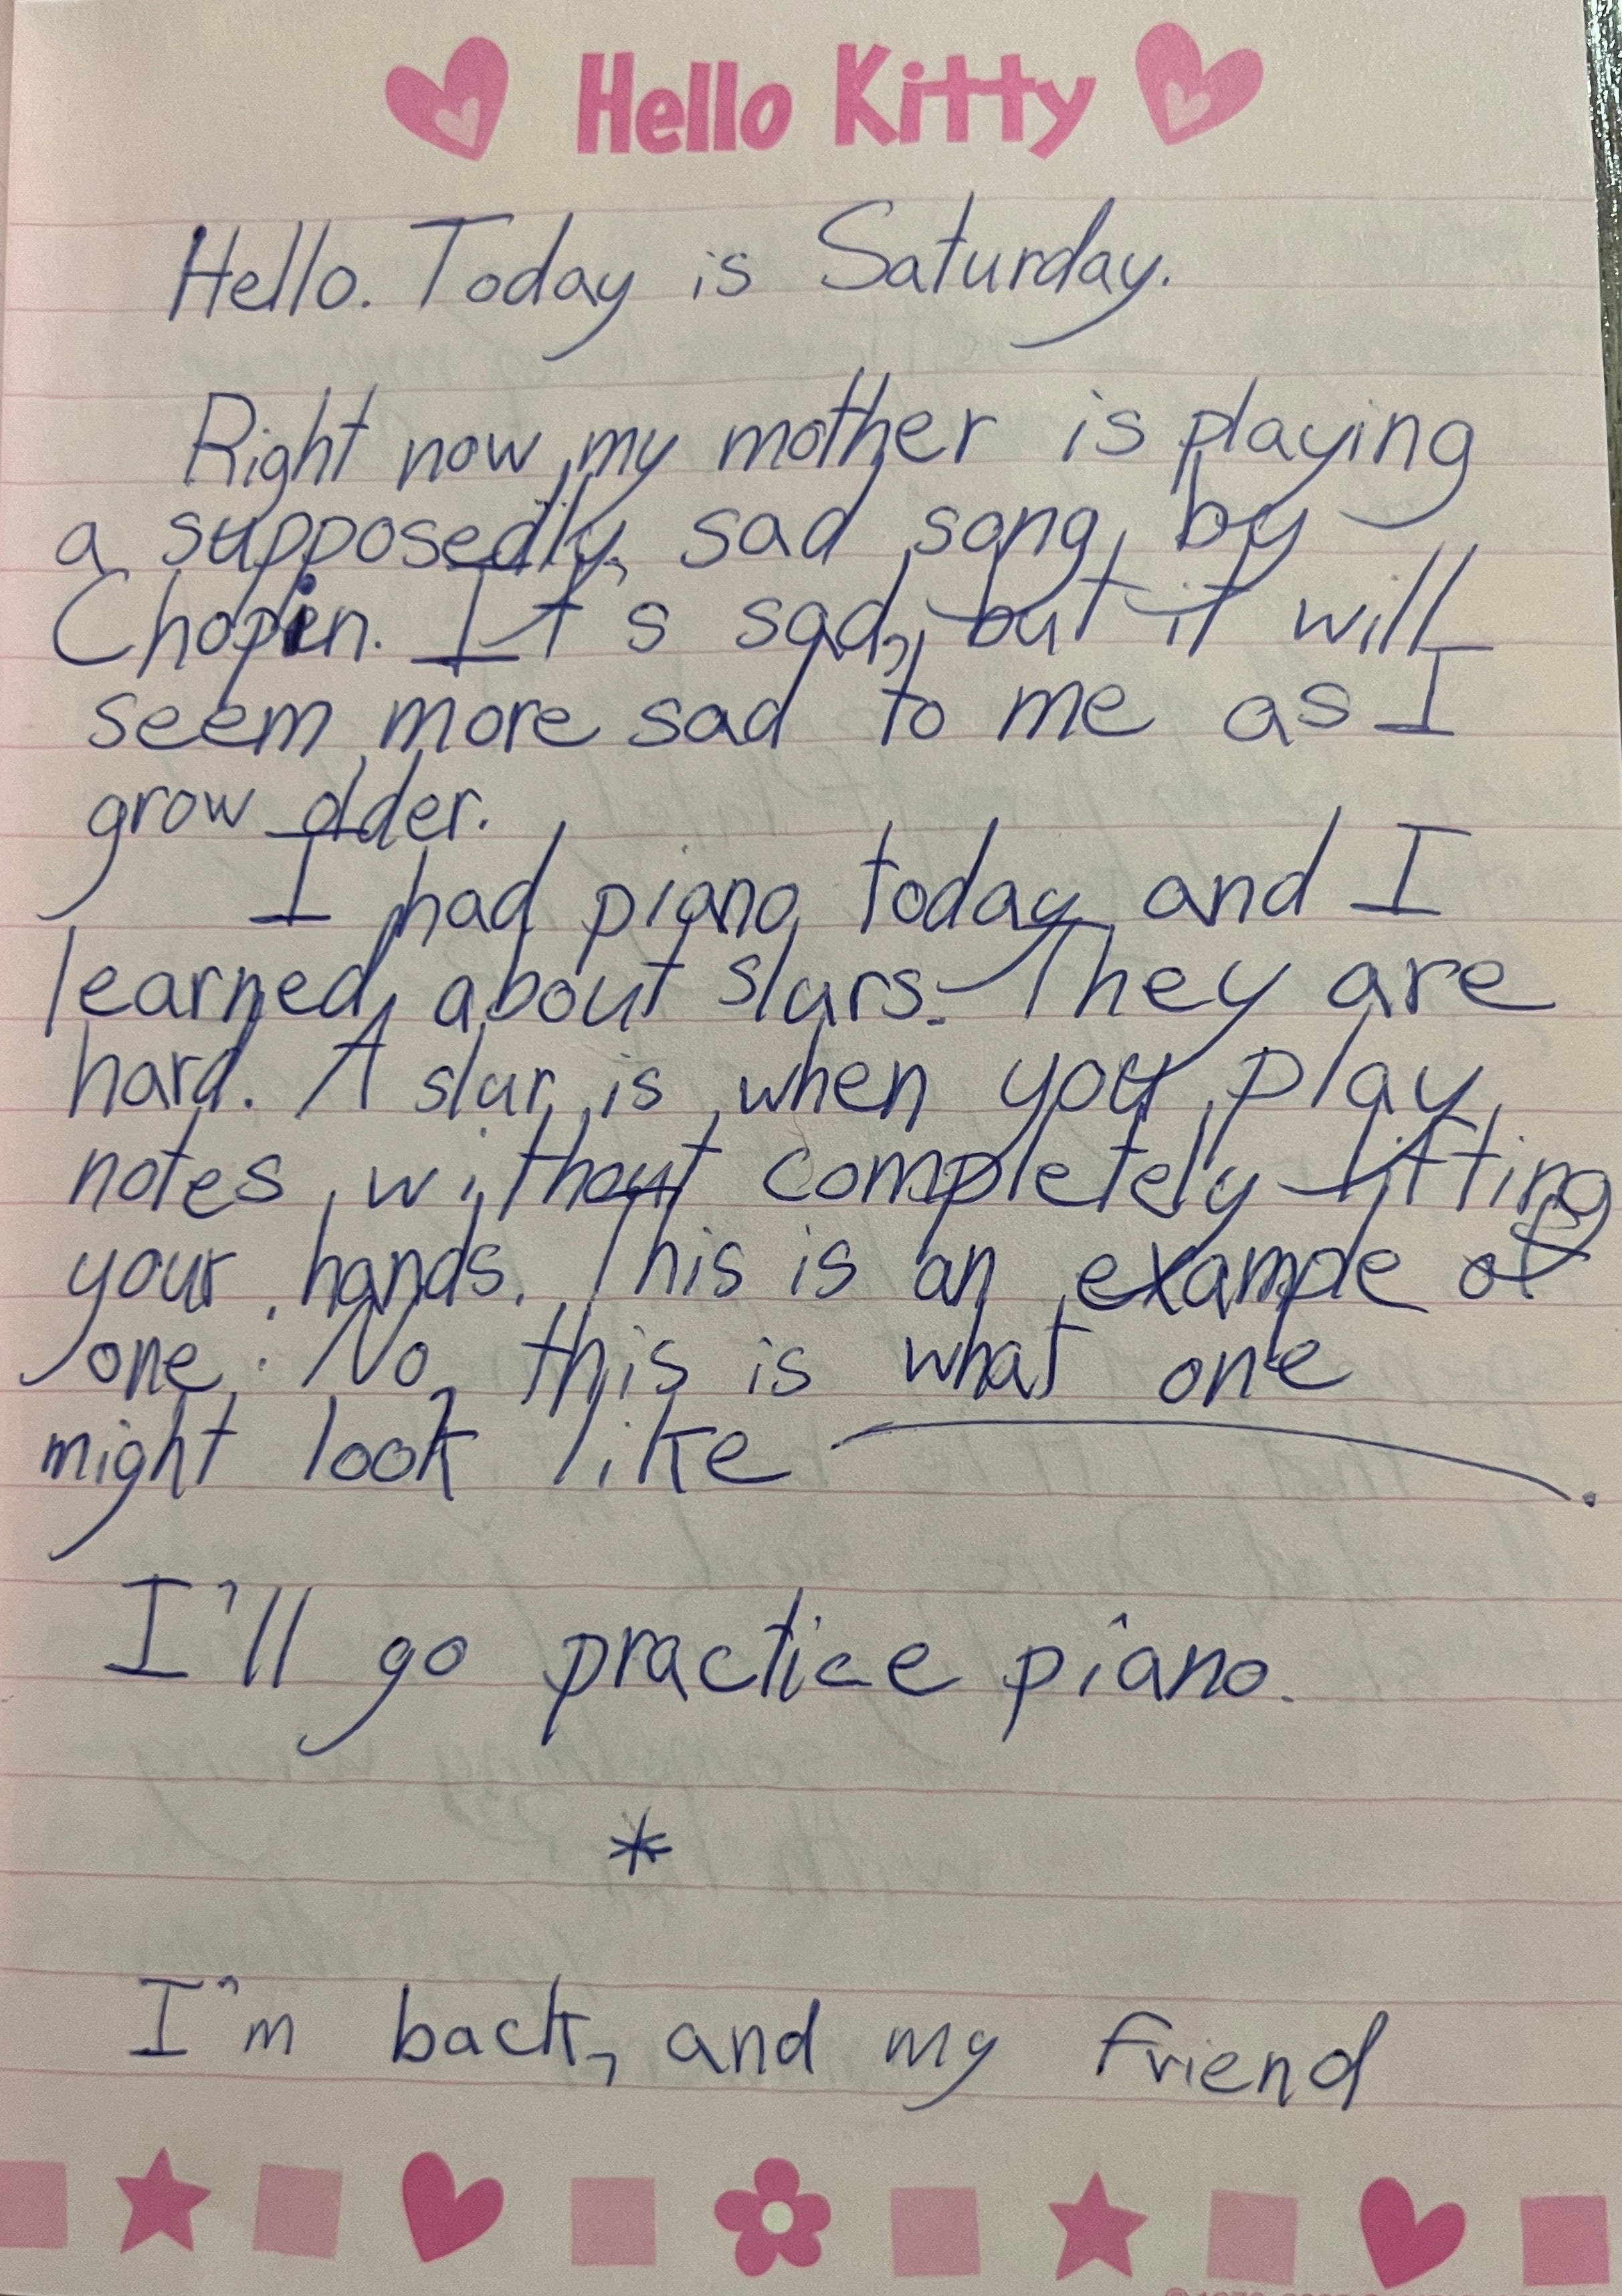 Hello Kitty
Hello. Today is Saturday.
Right now my mother is playing
a supposedly sad song by
Chopin. It's sad, but it will
seem more sad to me as I
grow older.
I had piano today and I
learned about slurs. They are
hard. A slur is when you play
notes without completely lifting
your hands. This is an example of
one. No, this is what one
might look like
I'll go practice piano.
*
I'm back, and my friend